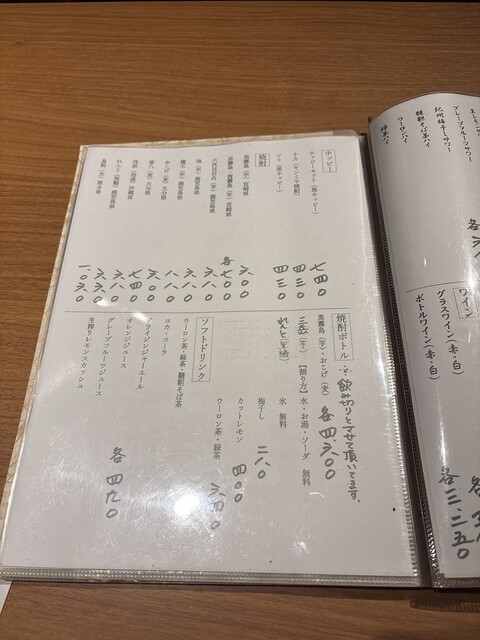 グレープフルーツサワー
紀州梅干しサワー
韃靼そば茶ハイ
ウーロンハイ
緑茶ハイ
ワイン
グラスワイン（赤・白）
ボトルワイン（赤・白） 各三、二五〇
ホッピー
ホッピーセット（黒ホッピー） 七四〇
ナカ（キンミヤ焼酎） 四三〇
ソト（黒ホッピー） 四三〇
焼酎
黒霧島（芋）宮崎県 六〇〇
赤霧島・茜霧島（芋）宮崎県 各七〇〇
六代目百合（芋）鹿児島県 六八〇
海（芋）鹿児島県
魔王（芋）鹿児島県
おこげ（麦）大分県
兼八（麦）大分県
残波（泡盛）沖縄県
れんと（黒糖）鹿児島県
鳥飼（米）熊本県
焼酎ボトル ※飲み切りとさせて頂いてます。
黒霧島（芋）・おこげ（麦） 各四、六〇〇
三岳（芋）【割り方】水・お湯・ソーダ 無料
れんと（黒糖） 氷 無料
梅干し 二八〇
カットレモン 四〇〇
ウーロン茶・緑茶 六四〇
ソフトドリンク
ウーロン茶・緑茶・韃靼そば茶
コカ・コーラ
ドライジンジャーエール
オレンジジュース
グレープフルーツジュース
生搾りレモンスカッシュ
各四九〇